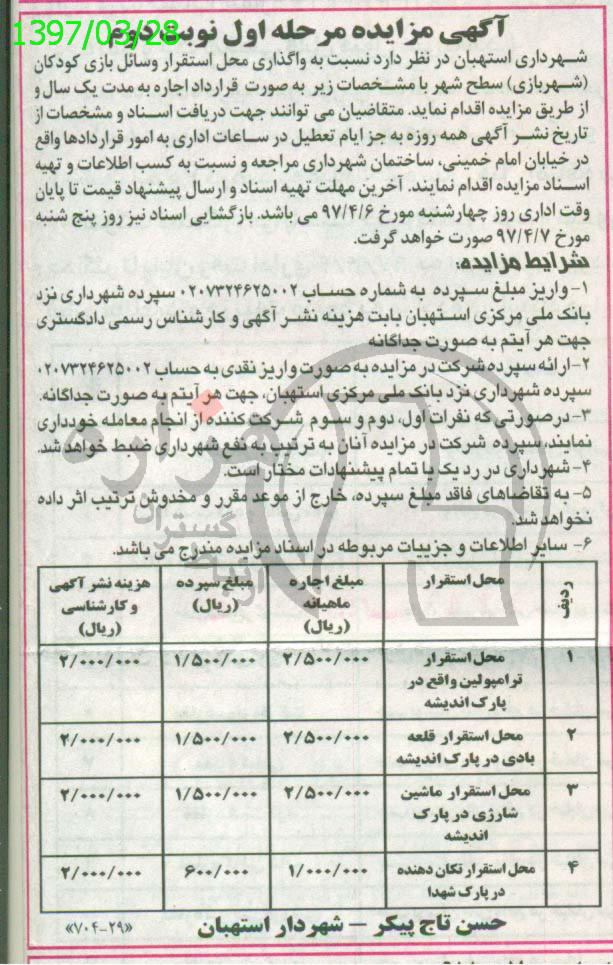 1397/03/28
آگهی مزایده مرحله اول نوبت دوم
شهرداری استهبان در نظر دارد نسبت به واگذاری محل استقرار وسائل بازی کودکان
(شهربازی) سطح شهر با مشخصات زیر به صورت قرارداد اجاره به مدت یک سال و
از طریق مزایده اقدام نماید. متقاضیان می توانند جهت دریافت اسناد و مشخصات از
تاریخ نشر آگهی همه روزه به جز ایام تعطیل در ساعات اداری به امور قراردادها واقع
در خیابان امام خمینی، ساختمان شهرداری مراجعه و نسبت به کسب اطلاعات و تهیه
اسناد مزایده اقدام نمایند. آخرین مهلت تهیه اسناد و ارسال پیشنهاد قیمت تا پایان
وقت اداری روز چهارشنبه مورخ ۹۷/۴/۶ می باشد. بازگشایی اسناد نیز روز پنج شنبه
مورخ ۹۷/۴/۷ صورت خواهد گرفت.
شرایط مزایده:
۱- واریز مبلغ سپرده به شماره حساب ۰۲۰۷۳۲۴۶۲۵۰۰۲ سپرده شهرداری نزد
بانک ملی مرکزی استهبان بابت هزینه نشر آگهی و کارشناس رسمی دادگستری
جهت هر آیتم به صورت جداگانه
۲- ارائه سپرده شرکت در مزایده به صورت واریز نقدی به حساب ۰۲۰۷۳۲۴۶۲۵۰۰۲
سپرده شهرداری نزد بانک ملی مرکزی استهبان، جهت هر آیتم به صورت جداگانه.
۳- درصورتی که نفرات اول، دوم و سوم شرکت کننده از انجام معامله خودداری
نمایند، سپرده شرکت در مزایده آنان به ترتیب به نفع شهرداری ضبط خواهد شد.
۴- شهرداری در رد یک یا تمام پیشنهادات مختار است.
۵- به تقاضاهای فاقد مبلغ سپرده، خارج از موعد مقرر و مخدوش ترتیب اثر داده
نخواهد شد.
۶- سایر اطلاعات و جزییات مربوطه در اسناد مزایده مندرج می باشد.
ردیف محل استقرار مبلغ اجاره ماهیانه (ریال) مبلغ سپرده (ریال) هزینه نشر آگهی و کارشناسی (ریال)
۱ محل استقرار ۲/۵۰۰/۰۰۰ ۱/۵۰۰/۰۰۰ ۲/۰۰۰/۰۰۰
ترامپولین واقع در
پارک اندیشه
۲ محل استقرار قلعه ۲/۵۰۰/۰۰۰ ۱/۵۰۰/۰۰۰ ۲/۰۰۰/۰۰۰
بادی در پارک اندیشه
۳ محل استقرار ماشین ۲/۵۰۰/۰۰۰ ۱/۵۰۰/۰۰۰ ۲/۰۰۰/۰۰۰
شارژی در پارک
اندیشه
۴ محل استقرار تکان دهنده ۱/۰۰۰/۰۰۰ ۶۰۰/۰۰۰ ۲/۰۰۰/۰۰۰
در پارک شهدا
حسن تاج پیکر - شهردار استهبان «۷۰۴-۲۹»